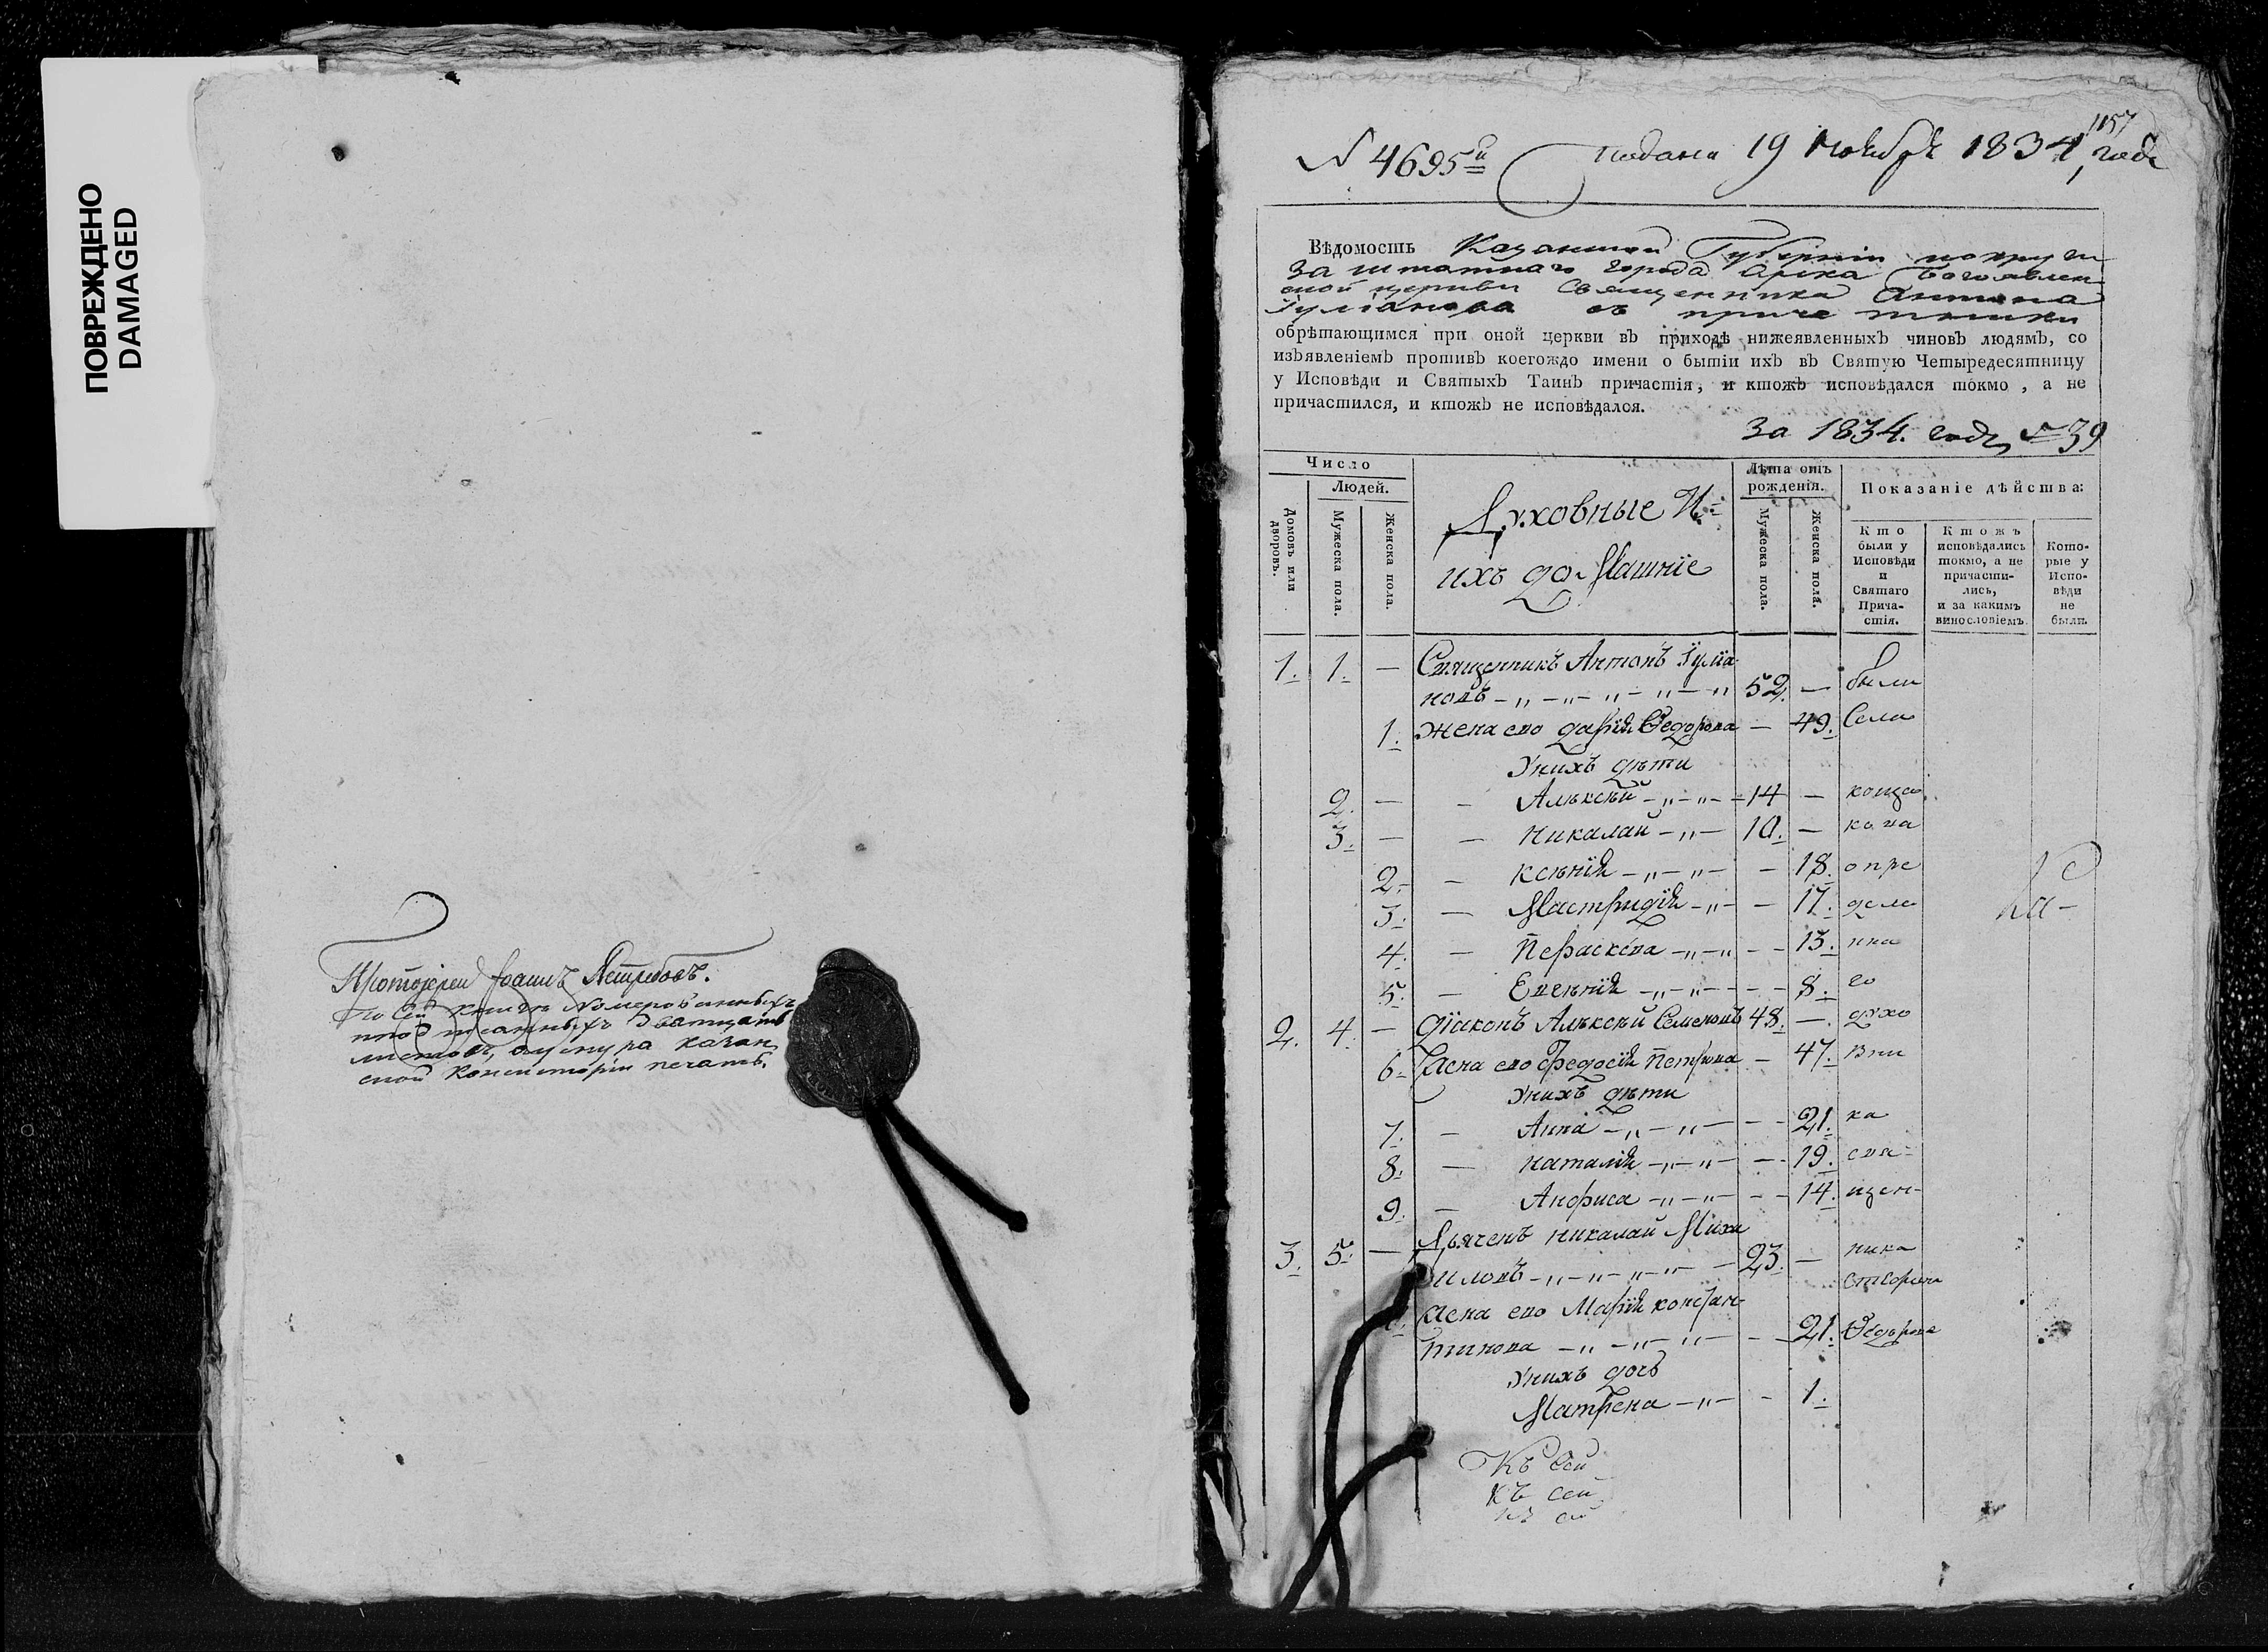 ПОВРЕЖДЕНО
DAMAGED
Протоіерей Іоаннъ Ястребовъ.
По сей книгѣ номерованныхъ
листовъ, Казан
ской Консисторіи печать.
1157
N 4695й подана 19 Ноября 1834, года
Вѣдомость Казанской Губерніи
заштатнаго города Арска Богоявлен
ской церкви Священника Антона
Іуліанова съ причетники
обрѣтающимся при оной церкви въ приходѣ нижеявленныхъ чиновъ людямъ, со
изъявленіемъ противъ коегождо имени о бытіи ихъ въ Святую Четыредесятницу
у Исповѣди и Святыхъ Таинъ причастія, и ктожъ исповѣдался токмо, а не
причастился, и ктожъ не исповѣдался.
За 1834. годъ № 39
Число
Людей.
Домовъ или дворовъ.
Мужеска пола.
Женска пола.
Духовные И
ихъ домашніе
Лѣта отъ рожденія.
Мужеска пола.
Женска пола.
Показаніе дѣйства:
Кто были у Исповѣди и Святаго Причастія.
Ктожъ исповѣдались токмо, а не причастились, и за какимъ винословіемъ
Которые у Исповѣди не были
1. 1. — Священникъ Антонъ Іуліа
новъ — 52. — были
1. Жена ево Дарія Ѳедорова — 49. Села
У нихъ дѣти
2. — — Алѣксѣй 14 —
3. — — Николай 10. —
2. — Ксѣнія — 18. опре
3. — Мастридія — 17. дѣле
4. — Пераскева — 13. нна
5. — Евгѣнія — 8. го
2. 4. — Діаконъ Алѣксѣй Семеновъ 48. — духо
6. Жена ево Федосія Петрова — 47. вни
У нихъ дѣти
7. — Анна — 21. ка
8. — Наталія — 19. свя
9. — Анфиса — 14. щен-
3. 5. — Дьячекъ Николай Миха
иловъ — 23. — ника
Жена ево Марія Констан-
тинова — 21. Ѳедорова
У нихъ дочь
Матрена — 1.
Къ сей
къ сей